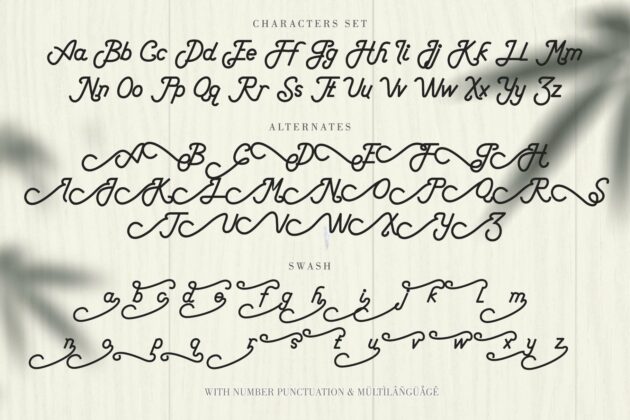 CHARACTERS SET
Aa Bb Cc Dd Ee Ff Gg Hh Ii Jj Kk Ll Mm
Nn Oo Pp Qq Rr Ss Tt Uu Vv Ww Xx Yy Zz
ALTERNATES
A B C D E F G H
I J K L M N O P Q R S
T U V W X Y Z
SWASH
a b c d e f g h i j k l m
n o p q r s t u v w x y z
WITH NUMBER PUNCTUATION & MÜLTÌLÂÑGÜÅGÉ